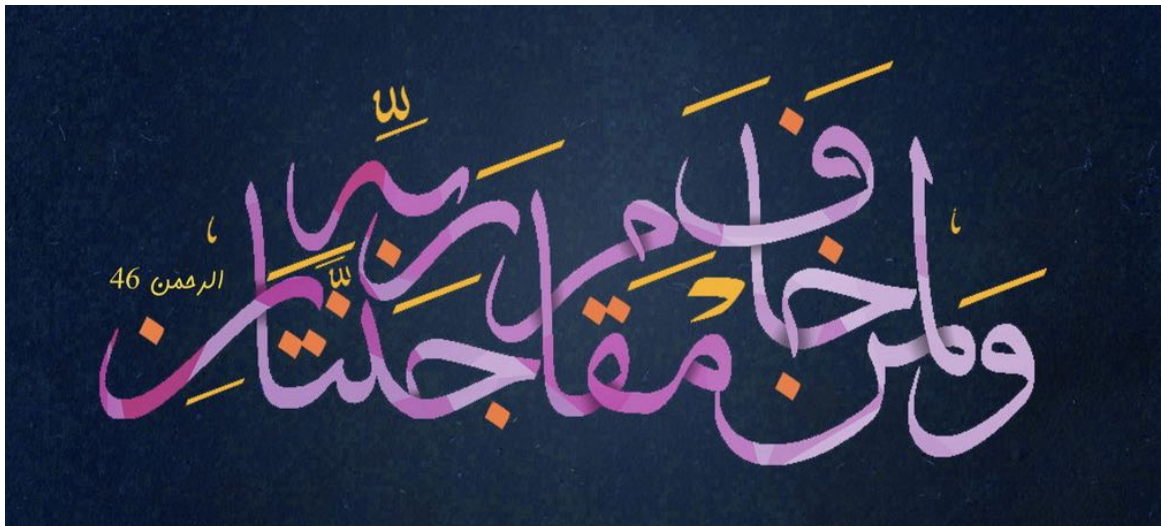 وَلِمَنْ خَافَ مَقَامَ رَبِّهِ جَنَّتَانِ
الرحمن 46